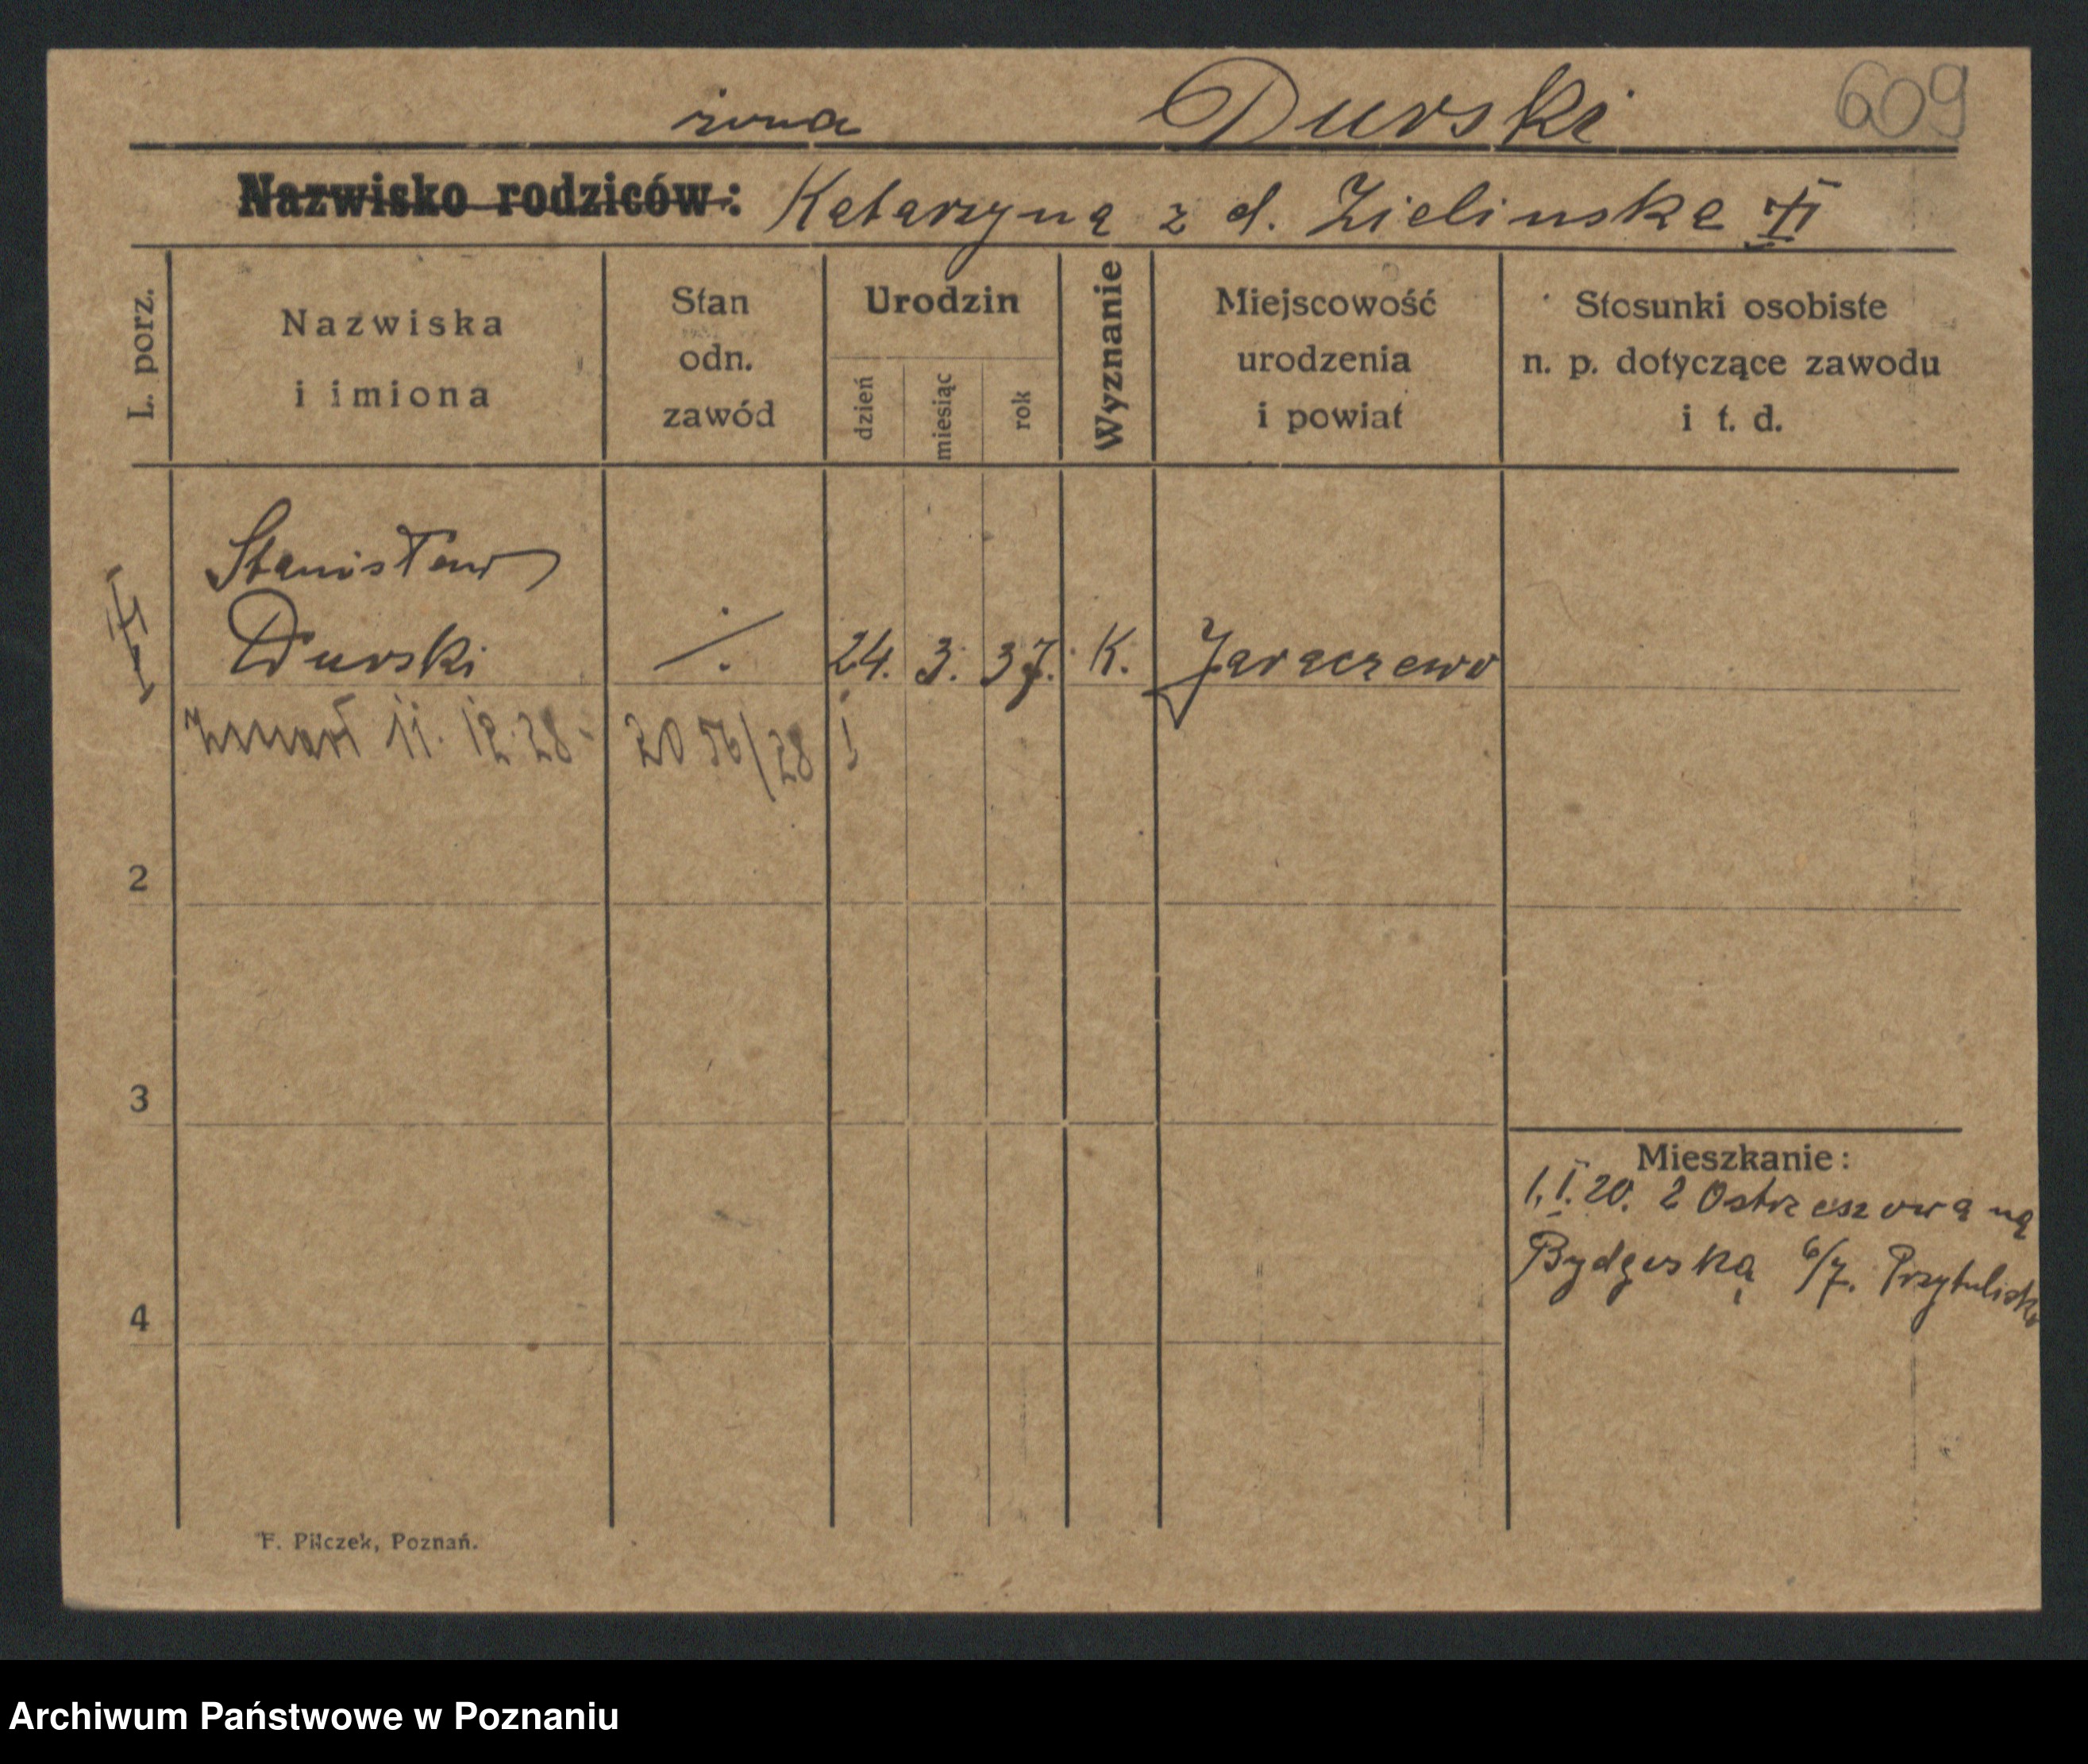 żona Durski 609
Nazwisko rodziców: Katarzyną z d. Zielinska
L. porz.
Nazwiska
i imiona
Stan
odn.
zawód
Urodzin
dzień
miesiąc
rok
Wyznanie
Miejscowość
urodzenia
i powiat
Stosunki osobiste
n. p. dotyczące zawodu
i t. d.
Stanisław
Durski ./. 24. 3. 37. K. Jaraczewo
Zmarł 11. 12. 28. 2056/28
2
3
4
Mieszkanie:
1. I. 20. z Ostrzeszowa na
Bydgoską 6/7. Przytulisko
F. Pilczek, Poznań.
Archiwum Państwowe w Poznaniu